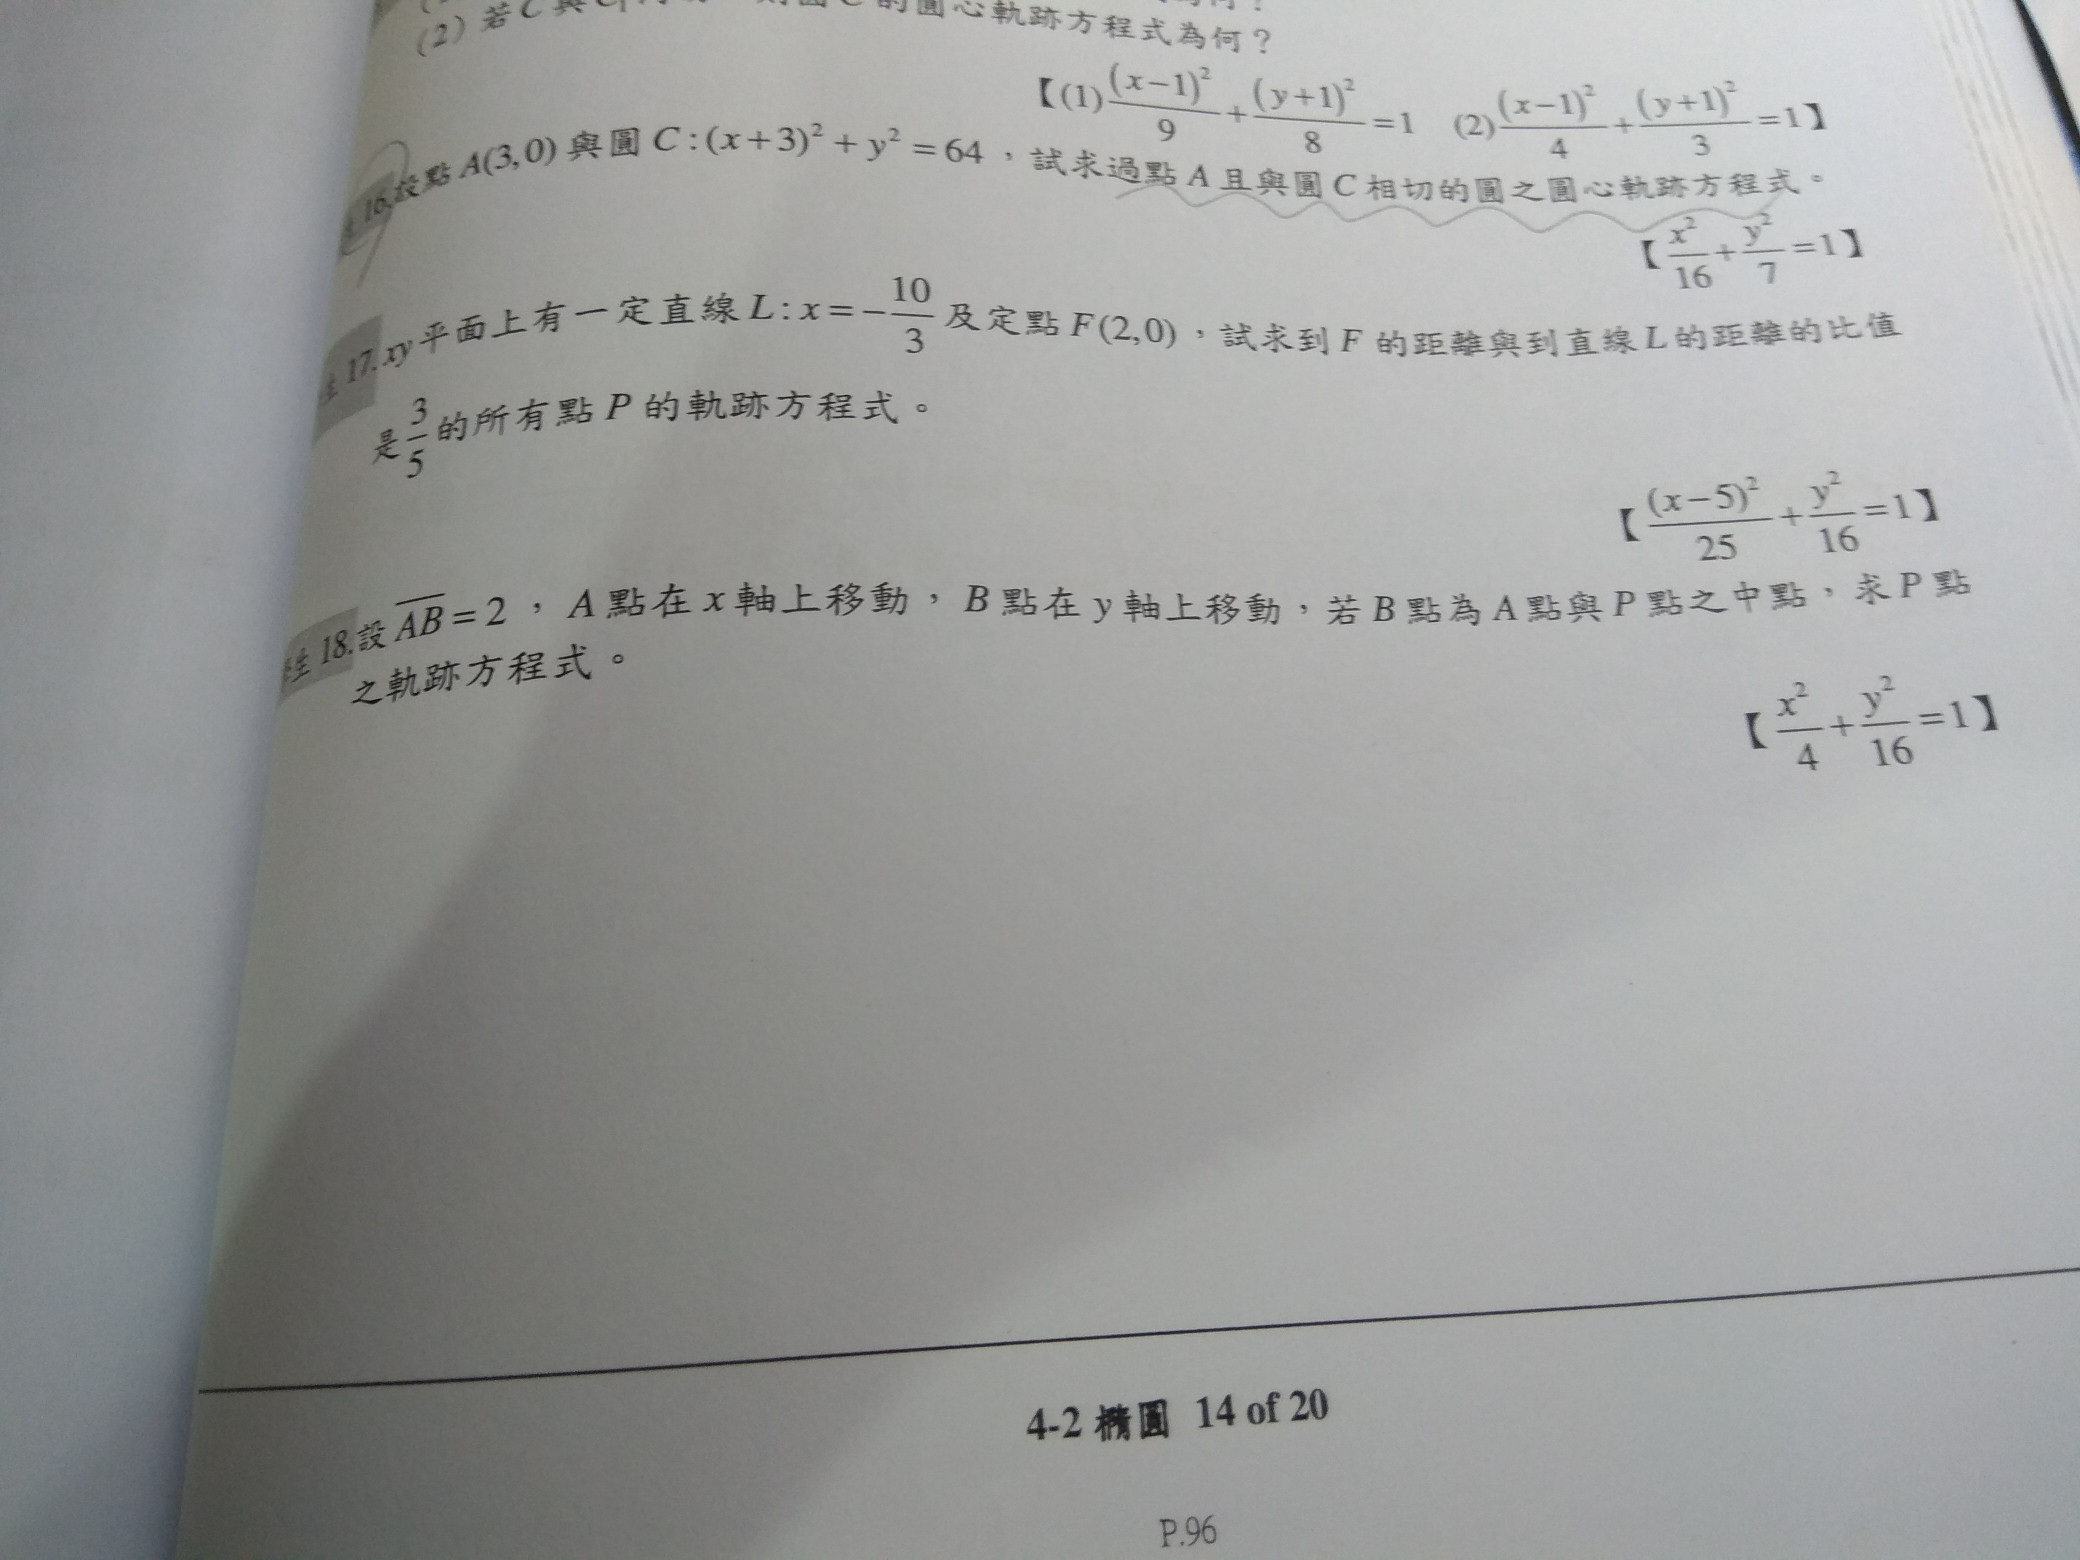 (2) 若 C 與 C₁ 圓 C 的圓心軌跡方程式為何？
【(1) (x−1)²/9 + (y+1)²/8 = 1 (2) (x−1)²/4 + (y+1)²/3 = 1】
16. 設點 A(3,0) 與圓 C : (x+3)² + y² = 64，試求過點 A 且與圓 C 相切的圓之圓心軌跡方程式。
【x²/16 + y²/7 = 1】
生 17. xy 平面上有一定直線 L : x = −10/3 及定點 F(2,0)，試求到 F 的距離與到直線 L 的距離的比值
是 3/5 的所有點 P 的軌跡方程式。
【(x−5)²/25 + y²/16 = 1】
生 18. 設 A̅B̅ = 2，A 點在 x 軸上移動，B 點在 y 軸上移動，若 B 點為 A 點與 P 點之中點，求 P 點
之軌跡方程式。
【x²/4 + y²/16 = 1】
4-2 橢圓 14 of 20
P.96